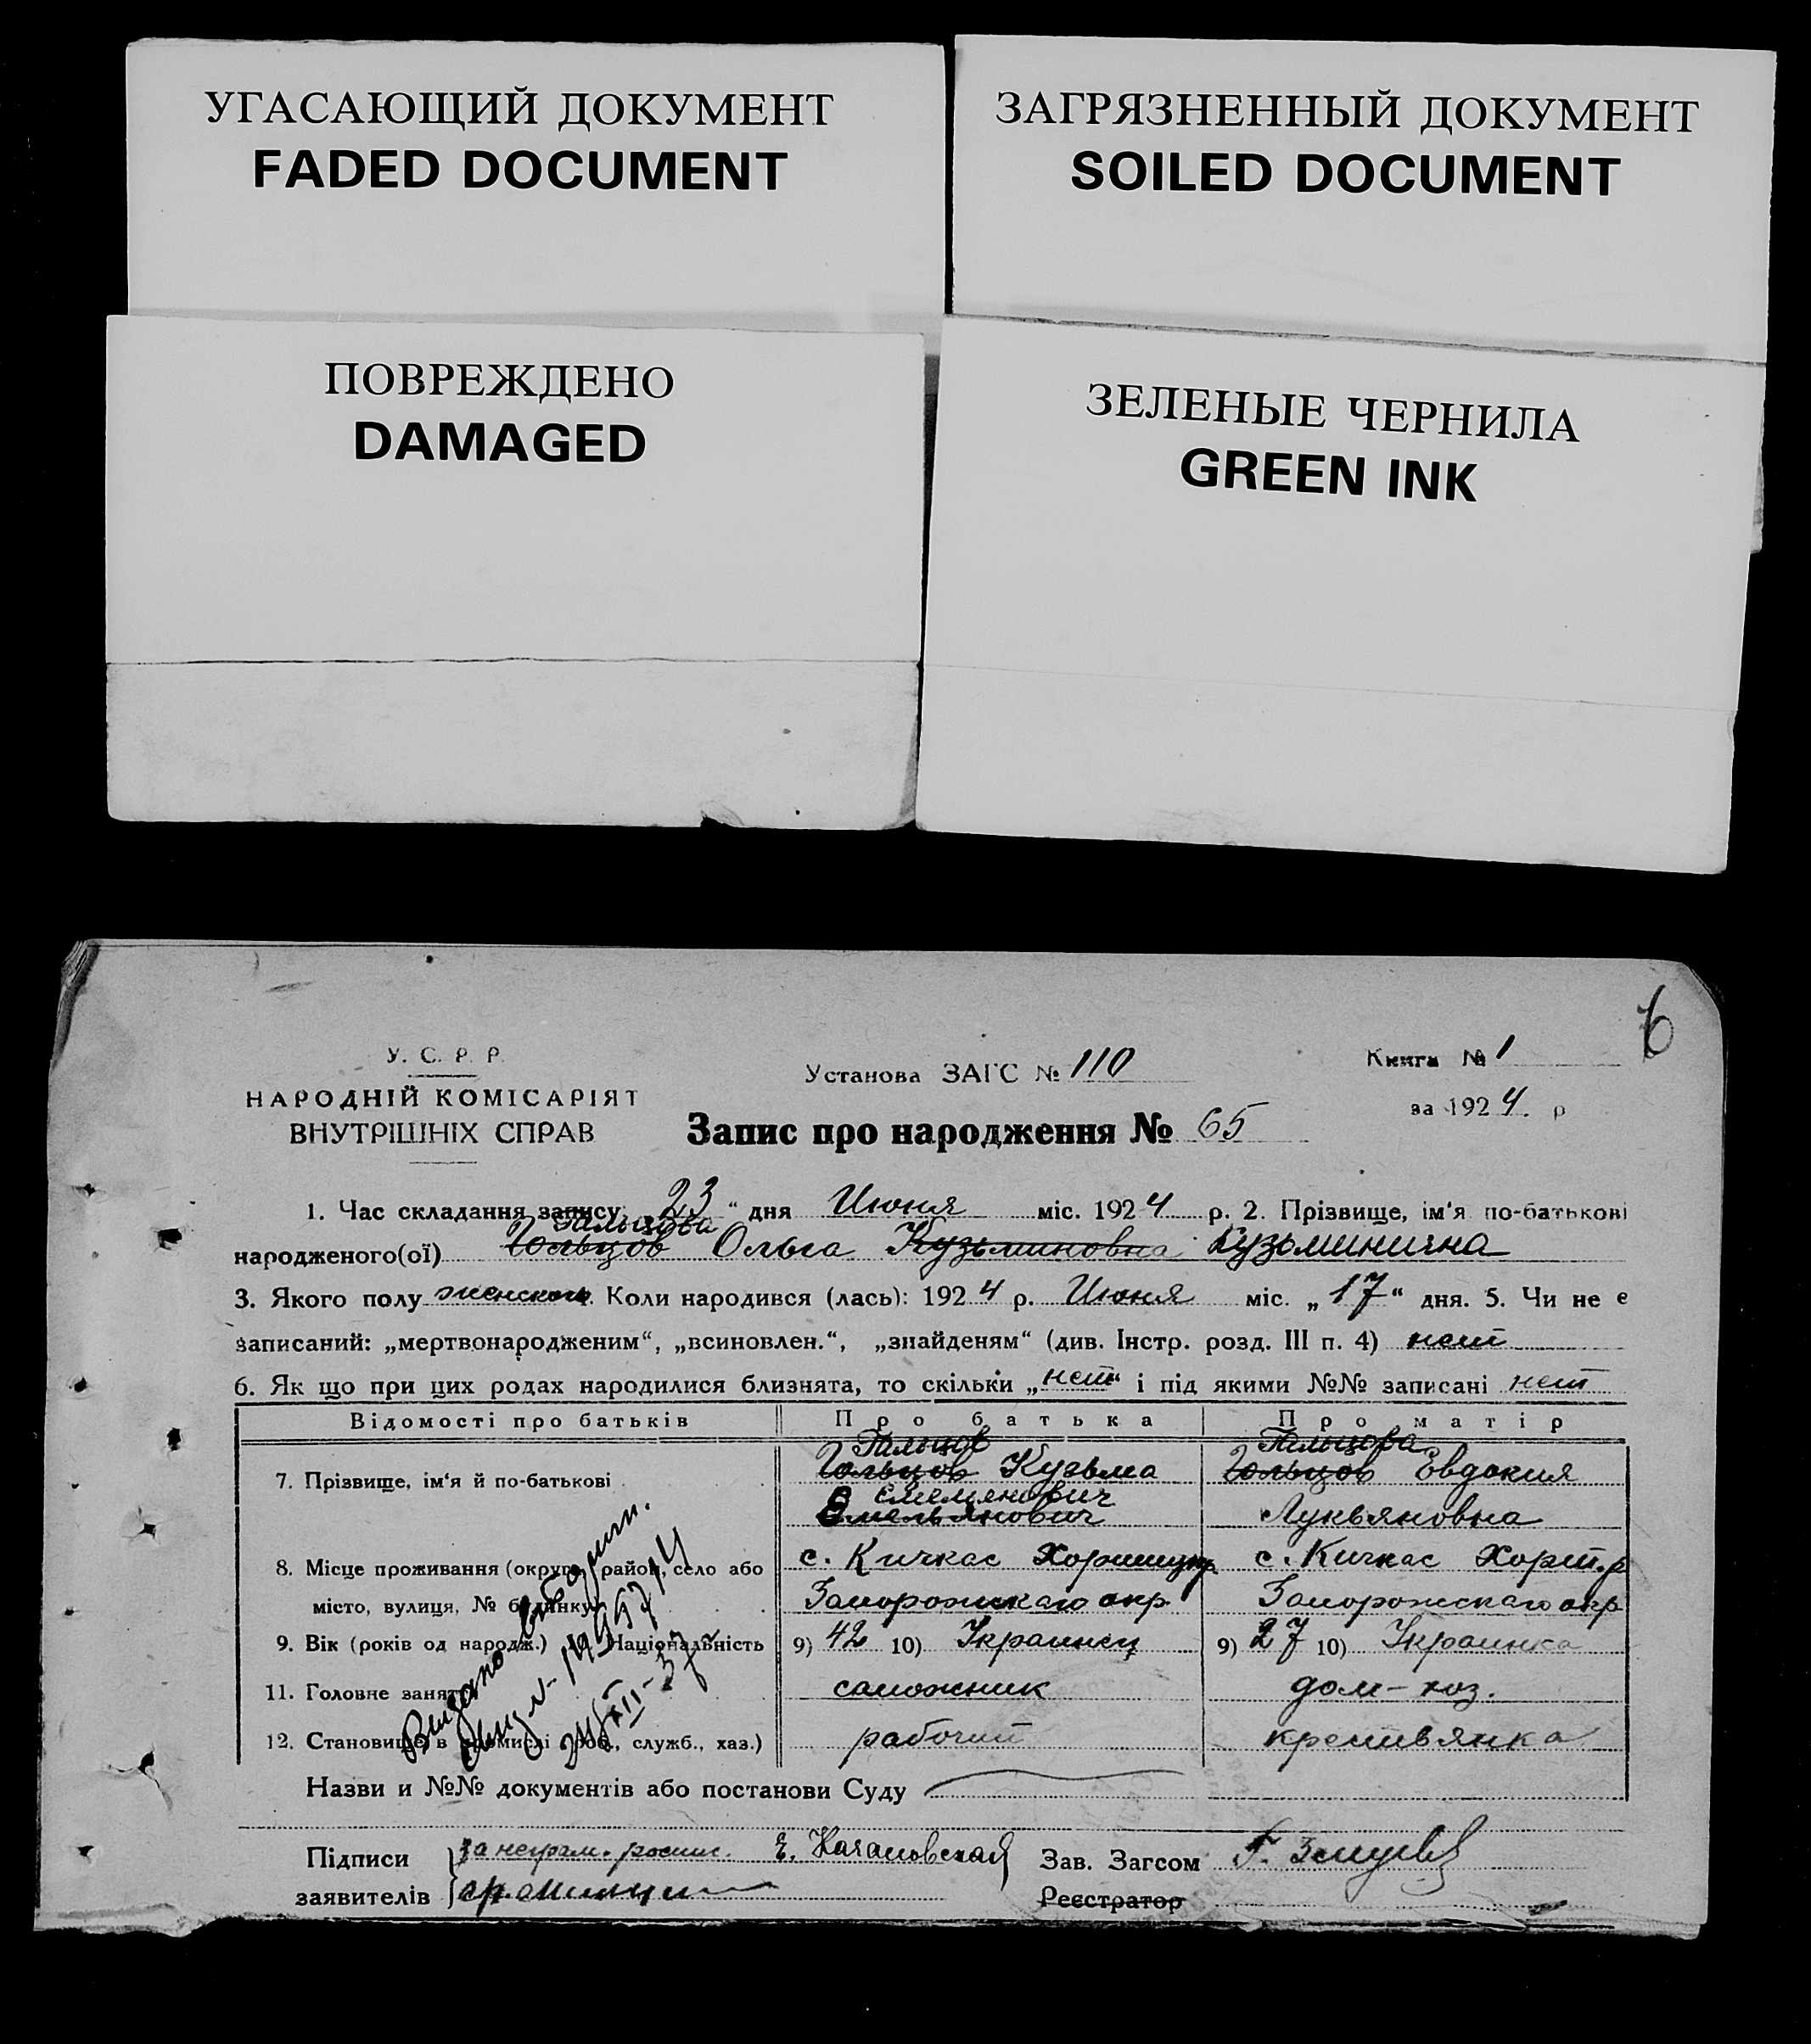 УГАСАЮЩИЙ ДОКУМЕНТ
FADED DOCUMENT
ЗАГРЯЗНЕННЫЙ ДОКУМЕНТ
SOILED DOCUMENT
ПОВРЕЖДЕНО
DAMAGED
ЗЕЛЕНЫЕ ЧЕРНИЛА
GREEN INK
6
У. С. Р. Р.
НАРОДНІЙ КОМІСАРІЯТ
ВНУТРІШНІХ СПРАВ
Установа ЗАГС № 110
Книга № 1
за 1924. р
Запис про народження № 65
1. Час складання запису 23 " дня Июня міс. 1924 р. 2. Прізвище, ім'я по-батькові
Гальцова
народженого(ої) Гольцов Ольга Кузьминовна Кузьминична
3. Якого полу женского. Коли народився (лась): 1924 р. Июня міс. „17" дня. 5. Чи не є
записаний: „мертвонародженим", „всиновлен.", „знайденям" (див. Інстр. розд. III п. 4) нет
6. Як що при цих родах народилися близнята, то скільки „нет" і під якими №№ записані нет
Відомості про батьків
Про батька
Про матір
7. Прізвище, ім'я й по-батькові
Гальцов
Гольцов Кузьма
Емельянович
Гальцова
Гольцов Евдокия
Лукьяновна
8. Місце проживання (округа, район, село або
місто, вулиця, № будинку)
с. Кичкас
Запорожскаго окр.
с. Кичкас Хорт. р
Запорожскаго окр
9. Вік (років од народж.) Національність
9) 42 10) Украинец
9) 27 10) Украинка
11. Головне заняття
сапожник
дом-хоз.
12. Становище в промислі (роб., служб., хаз.)
рабочий
крестьянка
Видано
Назви и №№ документів або постанови Суду
Підписи
заявителів
за неграм. роспис. Е. Качановская
Зав. Загсом
Реєстратор